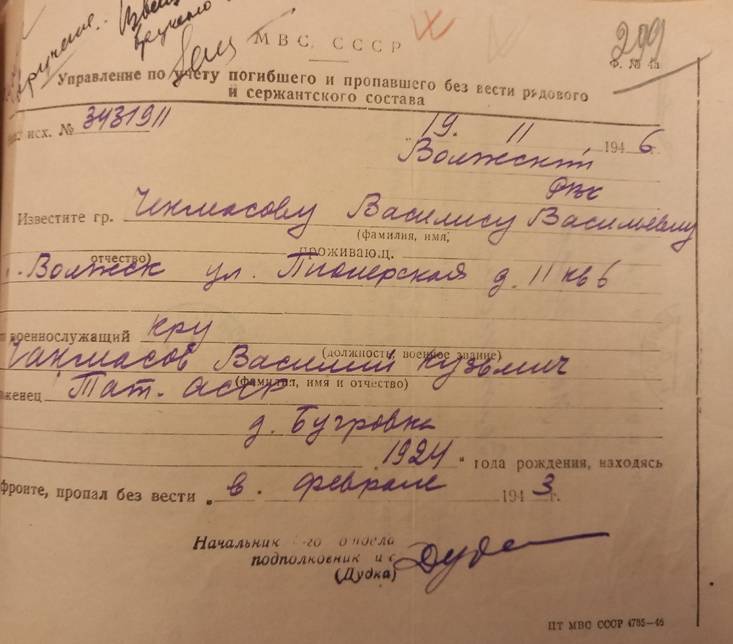 МВС СССР
299
Ф. № 4а
Управление по учету погибшего и пропавшего без вести рядового
и сержантского состава
исх. № 3431911
19. 11 1946
Волжский
РВК
Известите гр. Василису Васильевну
(фамилия, имя,
отчество) проживающ.
Волжск ул. Пионерская д. 11 кв 6
военнослужащий кр
(должность, военное звание)
Чекмасов Василий Кузьмич
(фамилия, имя и отчество)
женец Тат. АССР
д. Бугровка
1924 года рождения, находясь
фронте, пропал без вести в феврале 1943 г.
Начальник го отдела
подполковник
(Дудка)
ПТ МВС СССР 4785—46